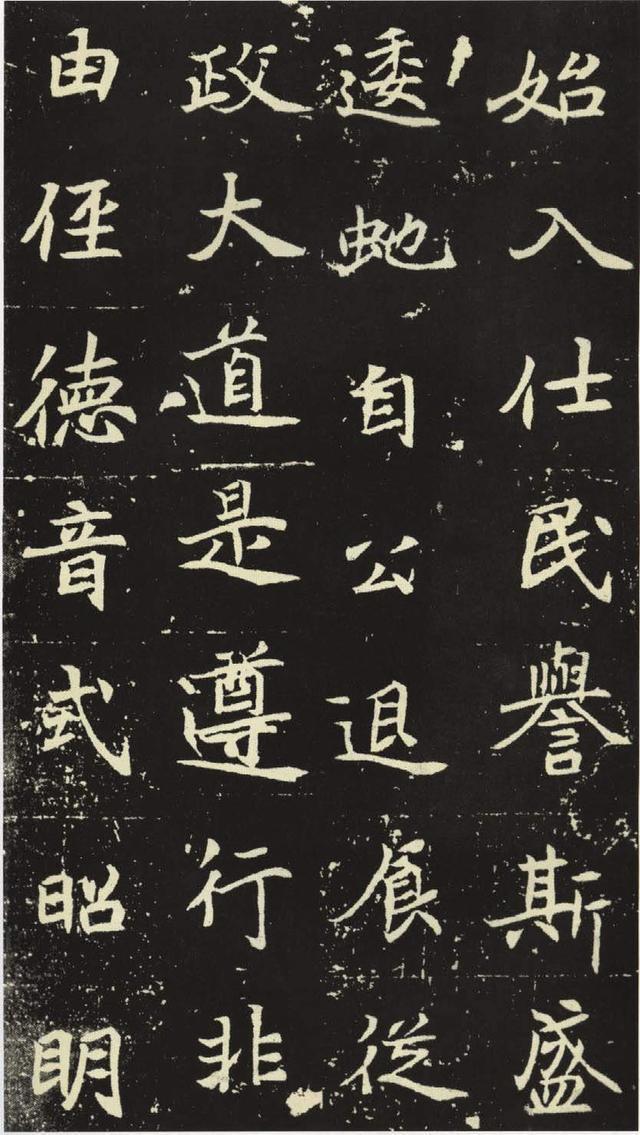 始入仕民譽斯盛
逶虵自公退食從
政大道是遵行非
由徑德音式昭明